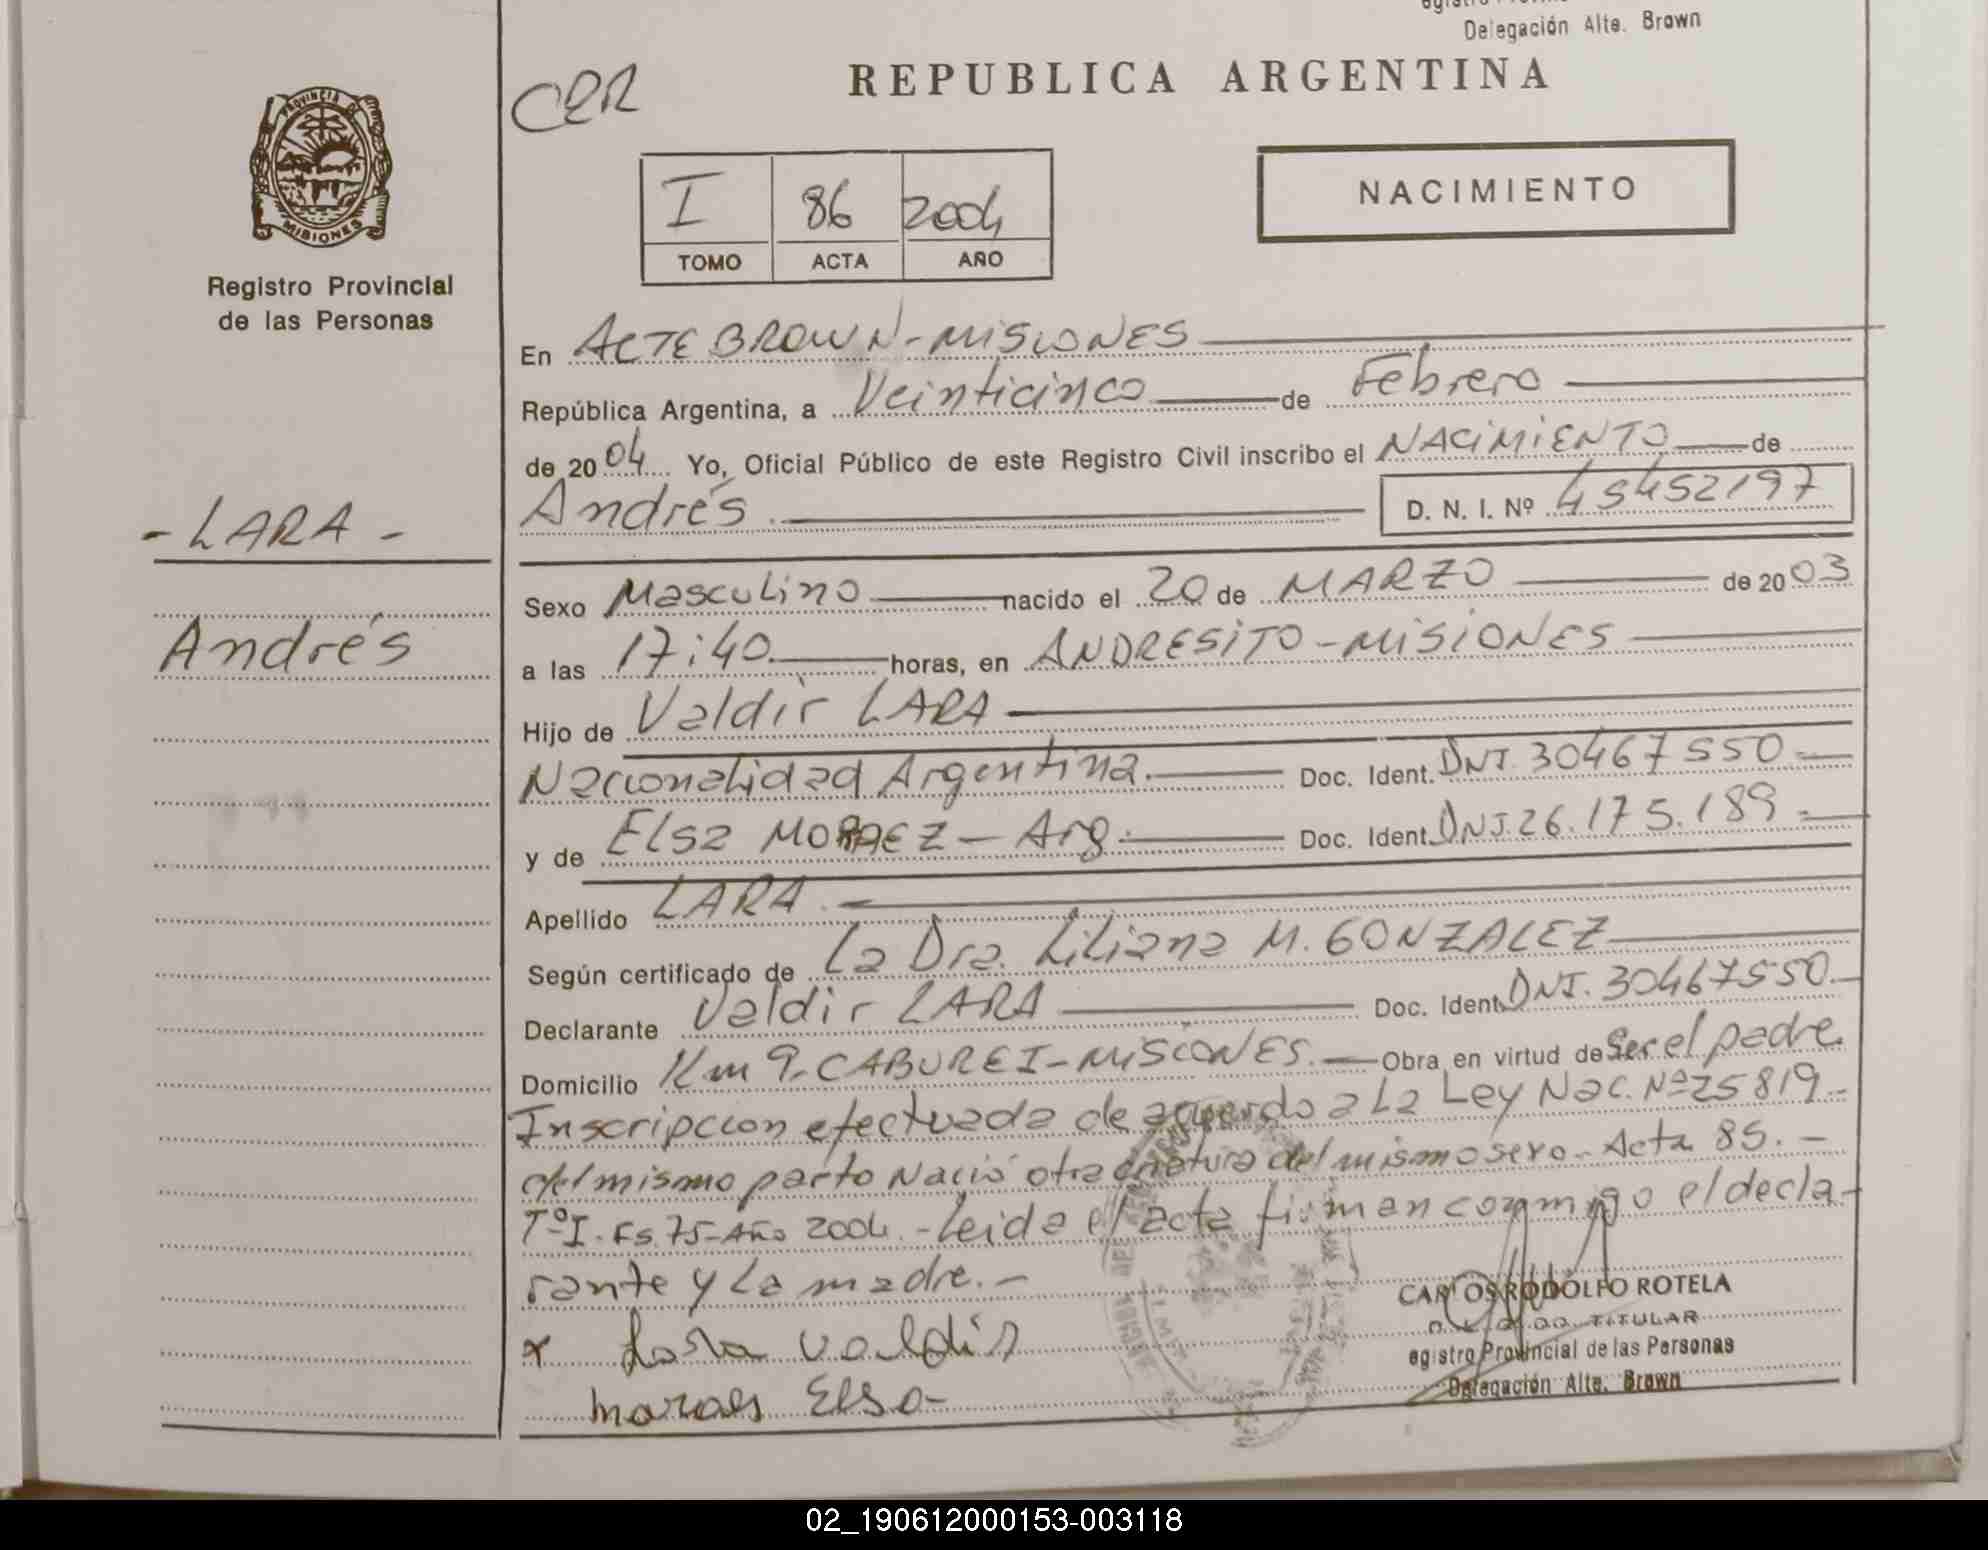 Delegación Alte. Brown
REPUBLICA ARGENTINA
CER
PROVINCIA DE
MISIONES
Registro Provincial
de las Personas
I 86 2004
TOMO ACTA AÑO
NACIMIENTO
En ALTE BROWN-MISIONES
República Argentina, a Veinticinco de Febrero
de 2004 Yo, Oficial Público de este Registro Civil inscribo el NACIMIENTO de
Andrés D. N. I. Nº 45452197
- LARA -
Andrés
Sexo Masculino nacido el 20 de MARZO de 2003
a las 17:40 horas, en ANDRESITO-MISIONES
Hijo de Valdir LARA
Nacionalidad Argentina. Doc. Ident. DNI. 30467550-
y de Elsa MORAEZ - Arg. Doc. Ident. DNI. 26.175.189-
Apellido LARA.
Según certificado de La Dra. Liliana M. GONZALEZ
Declarante Valdir LARA Doc. Ident. DNI. 30467550.-
Domicilio Km 9-CABUREI-MISIONES.- Obra en virtud de Ser el padre.
Inscripcion efectuada de acuerdo a La Ley Nac. Nº 25819.-
del mismo parto Nació otra criatura del mismo sexo - Acta 85.-
Tº I. Fs. 75- Año 2004.- Leida el acta firman conmigo el decla-
rante y La madre.-
x Lara Valdir
moraes Elsa-
CARLOS RODOLFO ROTELA
TITULAR
egistro Provincial de las Personas
Delegación Alte. Brown
02_190612000153-003118